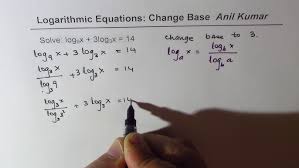 Logarithmic Equations: Change Base Anil Kumar
Solve: log₉x + 3log₃x = 14
log₉ x + 3 log₃ x = 14
log₃ x / log₃ 9 + 3 log₃ x = 14
log₃ x / log₃ 3² + 3 log₃ x = 14
change base to 3.
logₐ x = log_b x / log_b a